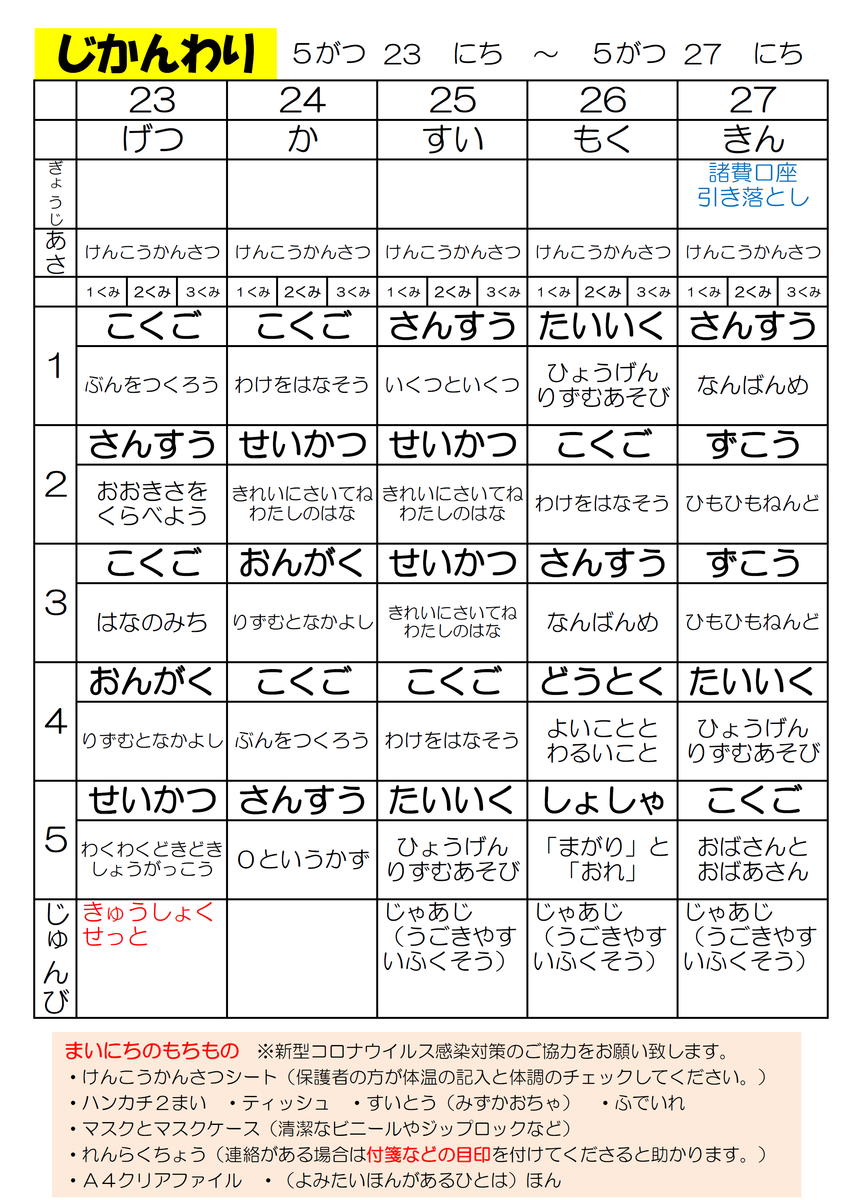 じかんわり ５がつ 23 にち ～ ５がつ 27 にち
23 24 25 26 27
げつ か すい もく きん
ぎょうじ 諸費口座
引き落とし
あさ けんこうかんさつ けんこうかんさつ けんこうかんさつ けんこうかんさつ けんこうかんさつ
１くみ 2くみ ３くみ １くみ 2くみ ３くみ １くみ 2くみ ３くみ １くみ 2くみ ３くみ １くみ 2くみ ３くみ
1
こくご こくご さんすう たいいく さんすう
ぶんをつくろう わけをはなそう いくつといくつ ひょうげん
りずむあそび なんばんめ
2
さんすう せいかつ せいかつ こくご ずこう
おおきさを
くらべよう きれいにさいてね
わたしのはな きれいにさいてね
わたしのはな わけをはなそう ひもひもねんど
3
こくご おんがく せいかつ さんすう ずこう
はなのみち りずむとなかよし きれいにさいてね
わたしのはな なんばんめ ひもひもねんど
4
おんがく こくご こくご どうとく たいいく
りずむとなかよし ぶんをつくろう わけをはなそう よいことと
わるいこと ひょうげん
りずむあそび
5
せいかつ さんすう たいいく しょしゃ こくご
わくわくどきどき
しょうがっこう ０というかず ひょうげん
りずむあそび 「まがり」と
「おれ」 おばさんと
おばあさん
じゅんび きゅうしょく
せっと じゃあじ
（うごきやす
いふくそう） じゃあじ
（うごきやす
いふくそう） じゃあじ
（うごきやす
いふくそう）
まいにちのもちもの ※新型コロナウイルス感染対策のご協力をお願い致します。
・けんこうかんさつシート（保護者の方が体温の記入と体調のチェックしてください。）
・ハンカチ２まい ・ティッシュ ・すいとう（みずかおちゃ） ・ふでいれ
・マスクとマスクケース（清潔なビニールやジップロックなど）
・れんらくちょう（連絡がある場合は付箋などの目印を付けてくださると助かります。）
・Ａ４クリアファイル ・（よみたいほんがあるひとは）ほん